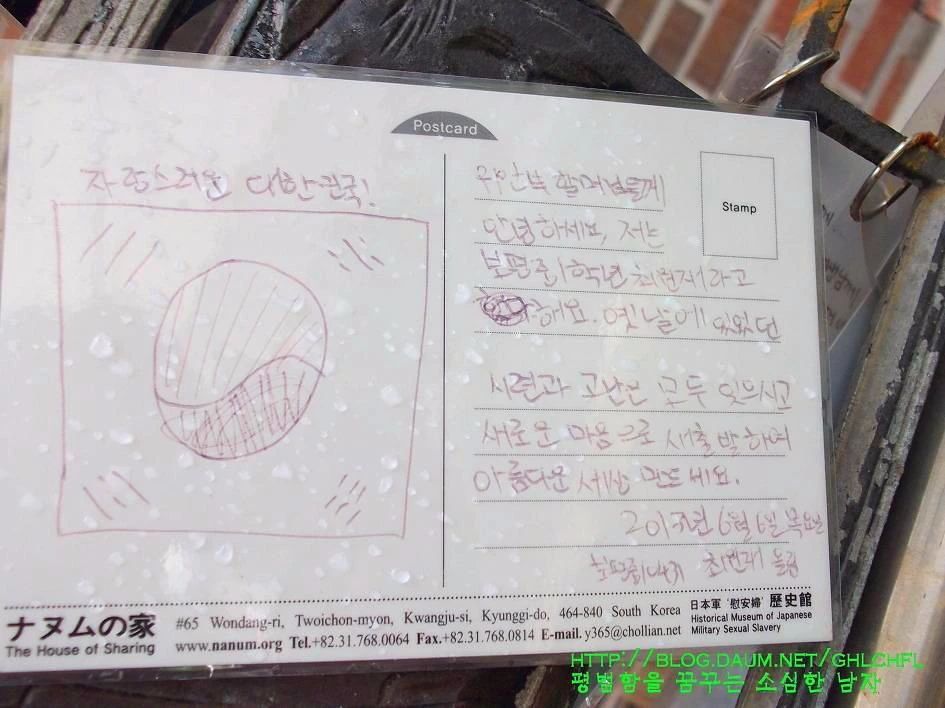 Postcard
자랑스러운 대한민국!
Stamp
위안부 할머님들께
안녕하세요, 저는
보평중 1학년 최민재라고
해요. 옛날에 있었던
시련과 고난은 모두 잊으시고
새로운 마음으로 새출발하여
아름다운 세상 만드세요.
6월 6일 목요일
최민재 올림
ナヌムの家
The House of Sharing
#65 Wondang-ri, Twoichon-myon, Kwangju-si, Kyunggi-do, 464-840 South Korea
www.nanum.org Tel.+82.31.768.0064 Fax.+82.31.768.0814 E-mail. y365@chollian.net
日本軍 '慰安婦' 歴史館
Historical Museum of Japanese
Military Sexual Slavery
HTTP://BLOG.DAUM.NET/GHLCHFL
평범함을 꿈꾸는 소심한 남자